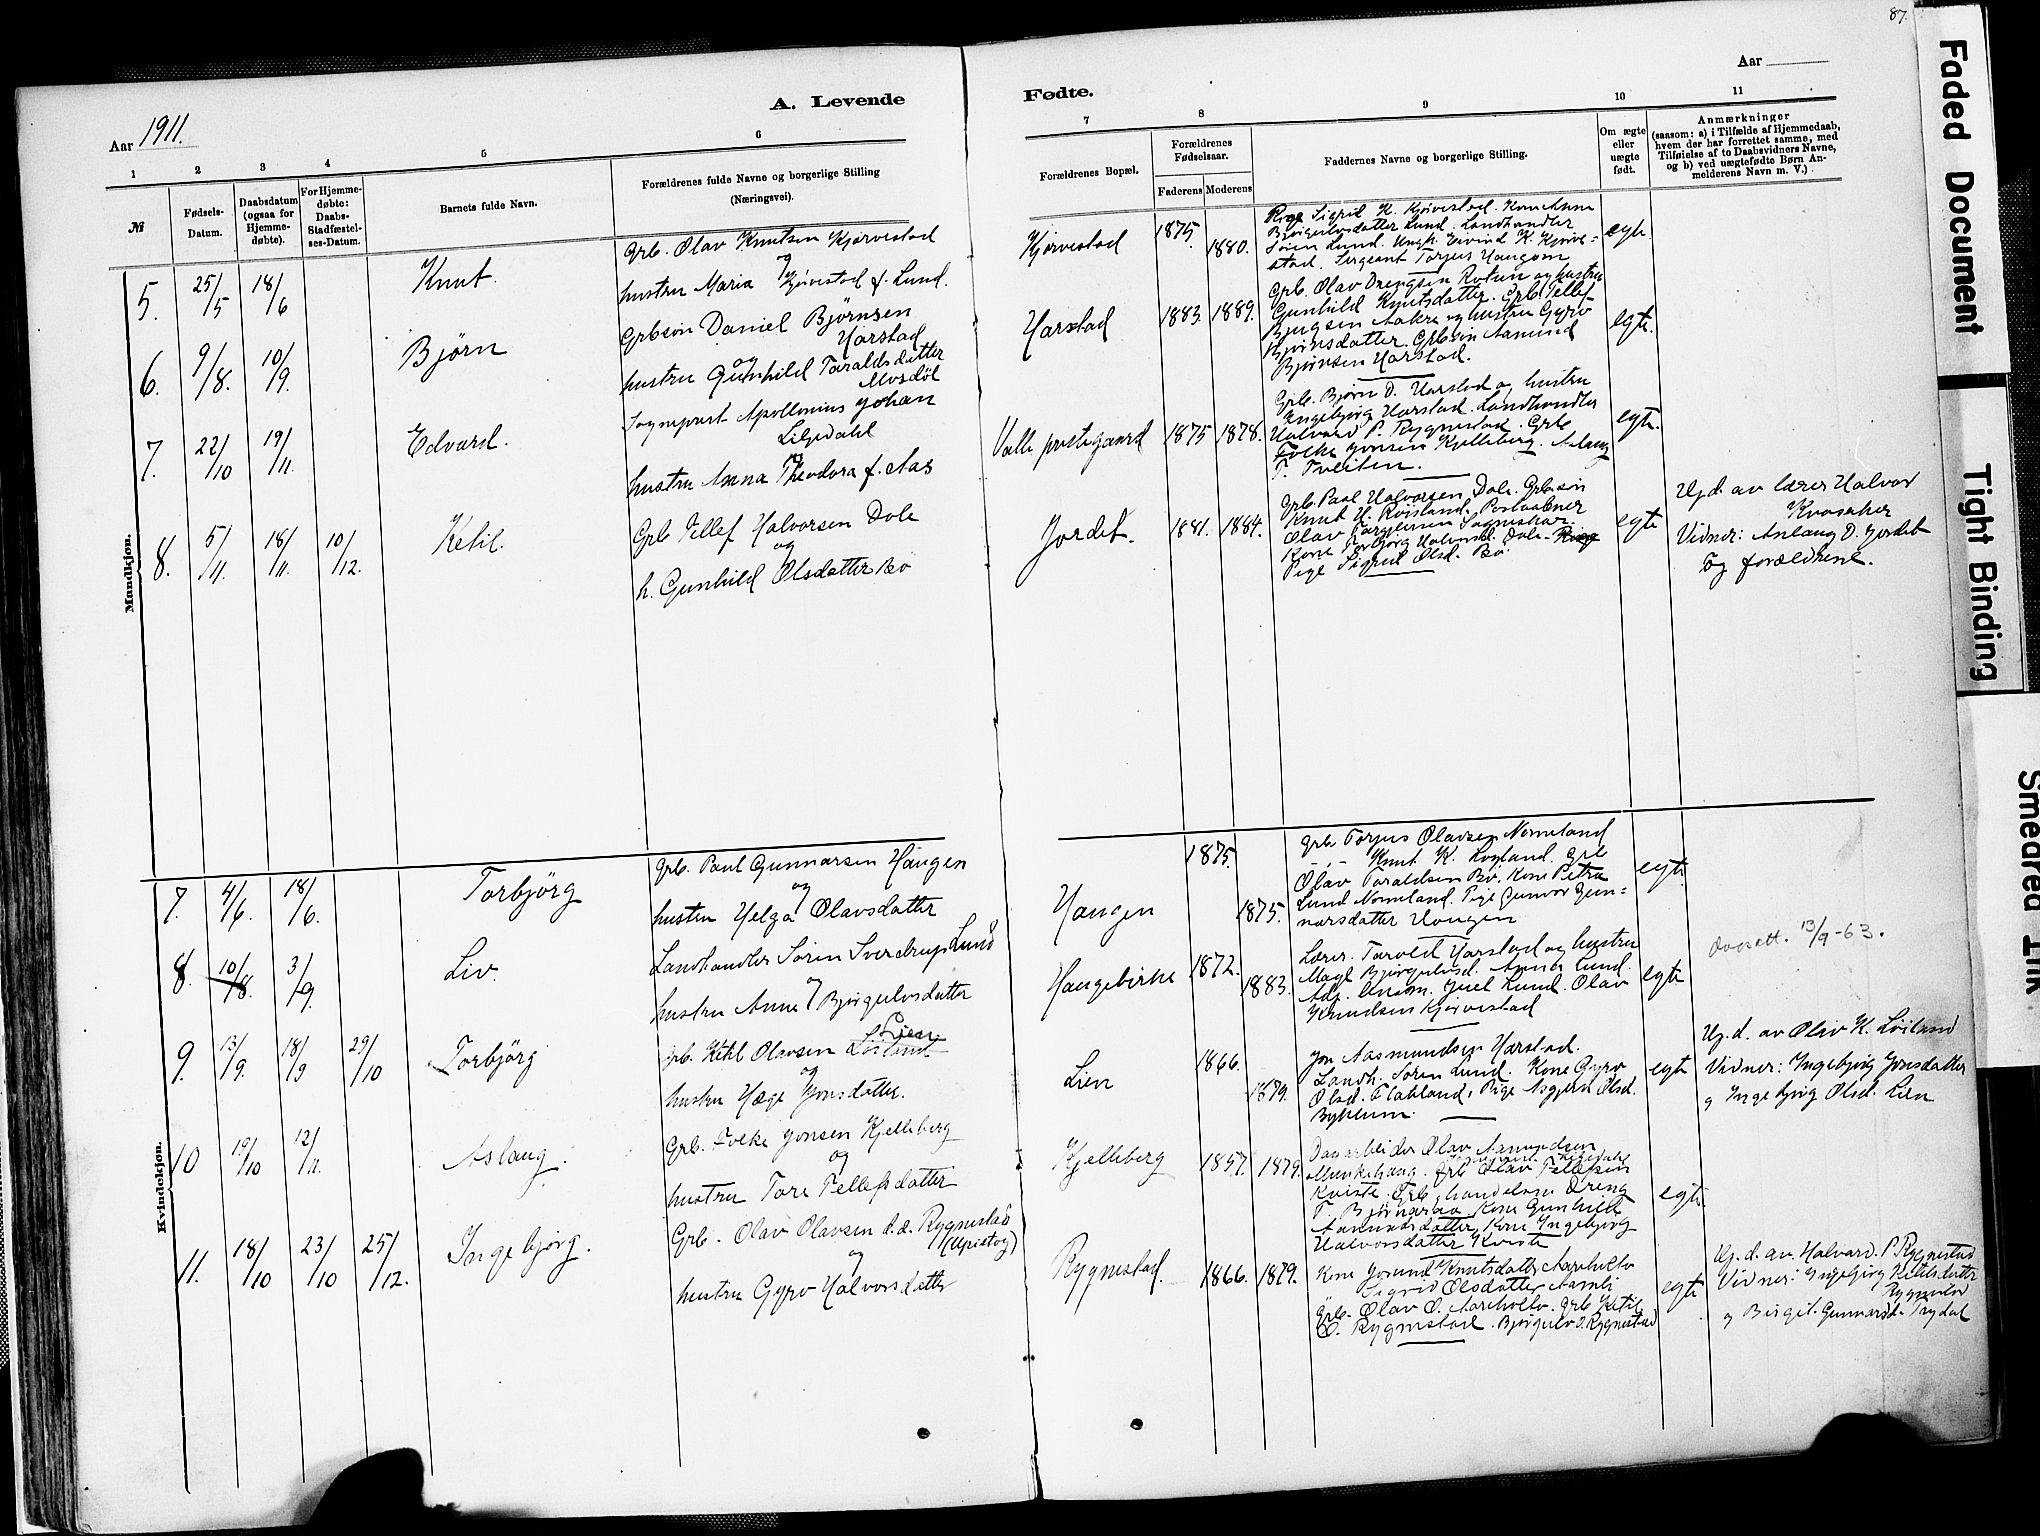 87.
A. Levende
Fødte.
Aar 1911.
Aar
1
2
3
4
5
6
7
8
9
10
11
№
Fødsels-
Datum.
Daabsdatum
(ogsaa for
Hjemme-
døbte).
For Hjemme-
døbte:
Daabs-
Stadfæstel-
ses-Datum.
Barnets fulde Navn.
Forældrenes fulde Navne og borgerlige Stilling
(Næringsvei).
Forældrenes Bopæl.
Forældrenes
Fødselsaar.
Faderens
Moderens
Faddernes Navne og borgerlige Stilling.
Om ægte
eller
uægte
født.
Anmærkninger
(saasom: a) i Tilfælde af Hjemmedaab,
hvem der har forrettet samme, med
Tilføielse af to Daabsvidners Navne,
og b) ved uægtefødte Børn An-
melderens Navn m. V.)
Mandkjøn.
5. 25/5 18/6 Knut.
Grb. Olav Knutsen Kjørvestad
og
hustru Maria Kjørvestad f. Lund.
Kjørvestad 1875. 1880.
Pige Sigrid K. Kjørvestad. Kone Anne
Bjørgulvsdatter Lund. Landhandler
Sören Lund. Ungk. Eivind K. Kjørve-
stad. Sergeant Torjus Haugom
egte.
6. 9/8. 10/9. Björn
Grbsön Daniel Björnsen
Harstad
og
hustru Gunhild Taraldsdatter
Mosdöl
Harstad 1883. 1889.
Grb. Olav Drengsen Rotum og hustru
Gunhild Knutsdatter. Grb. Tellef
Aakre og hustru Gyro
Bjørnsdatter. Grbsön Aamund
Bjørnsen Harstad.
egte.
7. 22/10 19/11. Edvard.
Sogneprest Apollonius Johan
Liljedahl
og
hustru Anna Theodora f. Aas
Valle prestegaard 1875 1878.
Grb. Björn D. Harstad og hustru
Ingebjørg Harstad. Landhandler
Halvard P. Rygnestad. Grb
Folke Jonsen Kjelleberg. Aslaug
T. Tveiten.
egte.
8. 5/11. 18/11. 10/12. Ketil.
Grb Tellef Halvorsen Dole
og
h. Gunhild Olsdatter Bö
Jordet. 1881. 1884.
Grb. Paal Halvorsen Dole. Grbsön
Knut H. Röisland. Postaabner
Olav Torgiersen
Kone Torbjørg Halvorsd. Dole.
Pige Sigrid Olsd. Bö.
egte
Hj.d. av lærer Halvor
Kvasaker
Vidner: Aslaug O. Jordet
og forældrene.
Kvindekjøn.
7. 4/6. 18/6. Torbjörg
Grb. Paul Gunnarsen Haugen
og
hustru Helga Olavsdatter
Haugen 1875. 1875.
Grb Torjus Olavsen Nomeland
-,- Knut K. Rogland. Grb
Olav Taraldsen Bö. Kone Petra
Lund Nomeland. Pige Gunvor Gun-
narsdatter Haugen
egte.
8. 10/8. 3/9. Liv.
Landhandler Sören Sverdrup Lund
og
hustru Anne Bjørgulvsdatter
Haugebirke 1872. 1883.
Lærer. Tarald Harstad og hustru
Bjørgulvsd. Anna Lund.
Juel Lund. Olav
Knudsen Kjørvestad
egte
Dvpatt. 13/9-63.
9. 13/9. 18/9 29/10 Torbjörg
Grb. Ketil Olavsen Löiland Lien
og
hustru Hæge Jonsdatter.
Lien 1866. 1879.
Jon Aasmundsen Harstad.
Landh. Sören Lund. Kone Gyro
Olsd. Flateland, Pige Asgjerd Olsd.
Byklum.
egte
Hj.d. av Olav K. Löiland
Vidner: Ingebjørg Jonsdatter
og Ingebjørg Olsd. Lien
10 19/10 12/11. Aslaug.
Grb. Folke Jonsen Kjelleberg
og
hustru Tore Tellefsdatter
Kjelleberg 1857. 1879.
Dagarbeider Olav Aamundsen
Munkehaug. Grb Olav Tellefsen
Kviste. Grb, handelsm. Dreng
T. Bjørnaraa, Kone Gunhild
Aamundsdatter, Kone Ingebjørg
Halvorsdatter Kviste
egte.
11. 18/10 23/10 25/12. Ingebjörg.
Grb. Olav Olavsen d.e. Rygnestad
og (Upistog)
hustru Gyro Halvorsdatter
Rygnestad. 1866. 1879.
Kone Jorund Knutsdatter Aarholtv
Sigrid Olsdatter Aamli
Grb. Olav O. Aarholtv. Grb Ketil
O. Rygnestad. Bjørgulv O. Rygnestad
egte
Hj.d. av Halvard P. Rygnestad
Vidner: Ingebjörg Ketilsdatter
Rygnestad
og Birgit Gunnarsd. Trydal
Faded Document
Tight Binding
Smeared Ink